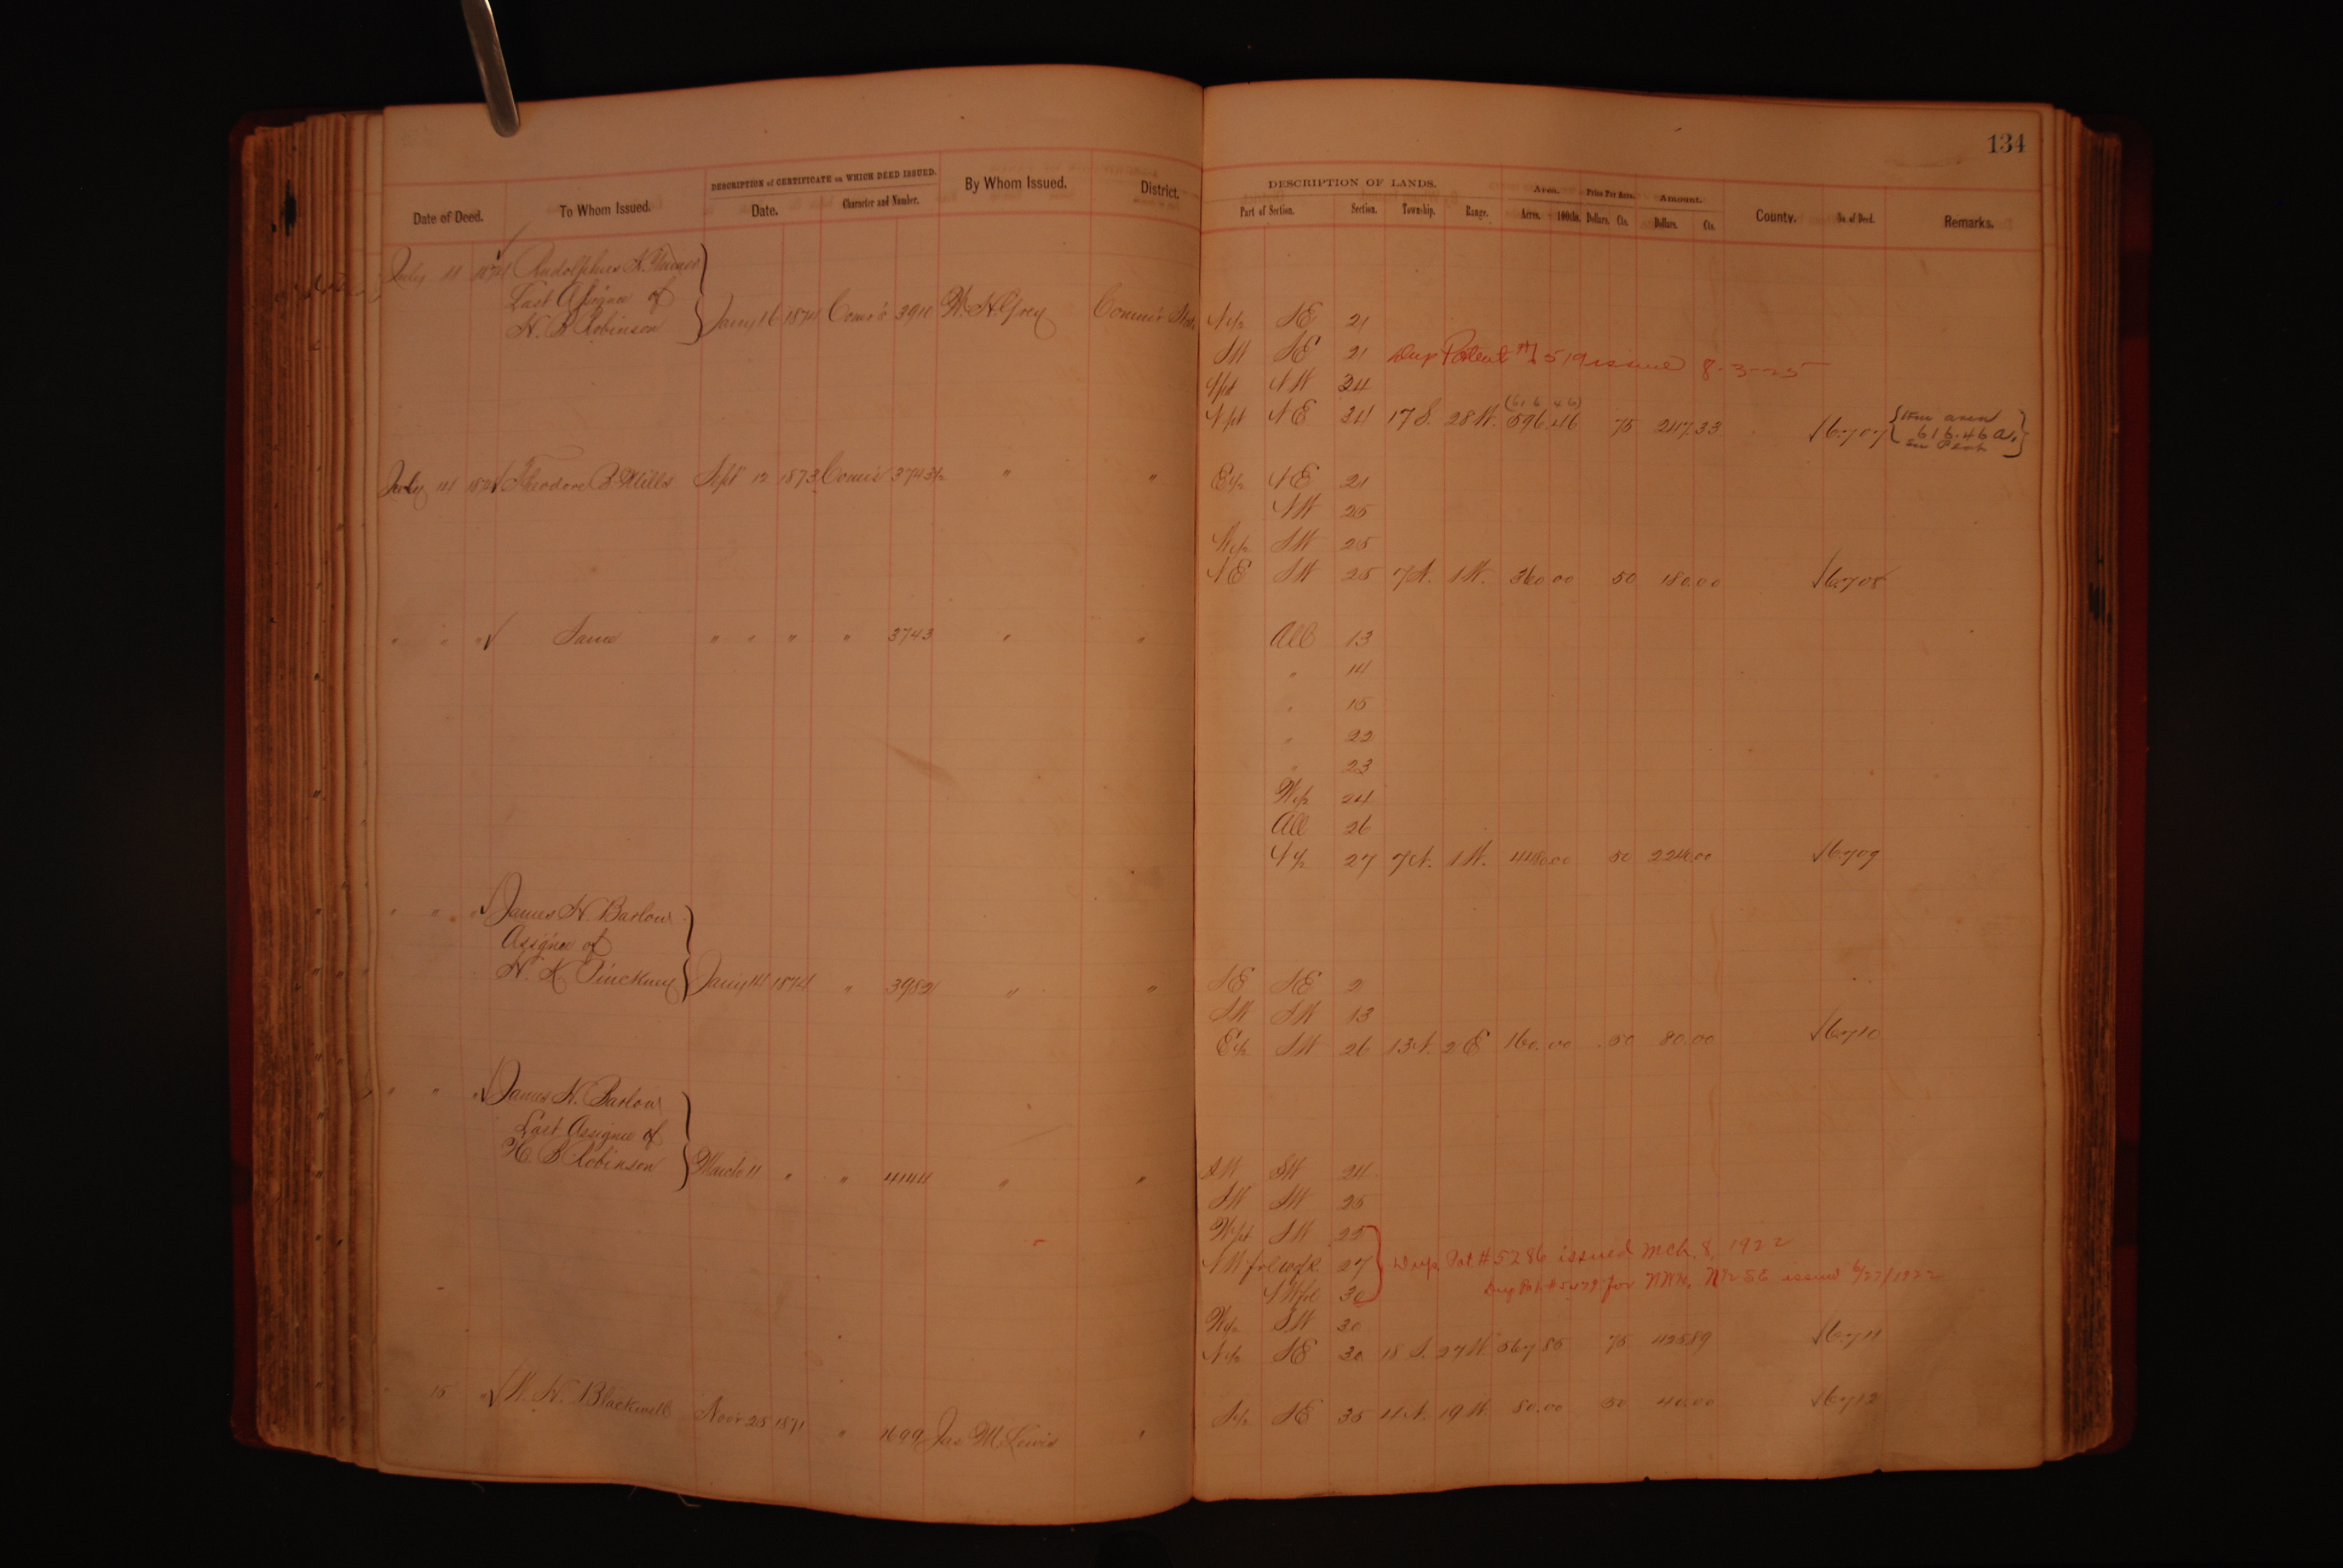 134
DESCRIPTION of CERTIFICATE on WHICH DEED ISSUED.
Date of Deed. To Whom Issued. Date. Character and Number. By Whom Issued. District.
DESCRIPTION OF LANDS. Area. Price Per Acre. Amount.
Part of Section. Section. Township. Range. Acres. 100ths. Dollars. Cts. Dollars. Cts. County. No. of Deed. Remarks.
July 11 1874 Rudolphus K.
Last Assignee of
H. B. Robinson Jany 16 1874 Comr's W. H. Grey Commr State N½ SE 21
SW SE 21 Dup Patent # 519 issued 8-3-25
NW 34
(616 46)
NE 34 17 S. 28 W. 596.46 75 6707 True area
616.46 a.
July 14 1874 Theodore B. Mills Sept 12 1873 Comr's 3743½ " " E½ NE 21
NW 25
W½ SW 25
NE SW 25 7 N. 1 W. 360.00 50 180.00 6708
" " " Same " " " " 3743 " " All 13
" 14
" 15
" 22
" 23
W½ 24
All 26
N½ 27 7 N. 1 W. 50 6709
" " " James H. Barlow
Assignee of
H. K. Pinckney Jany 14 1874 " 3982 " " SE SE 2
SW SW 13
E½ SW 26 13 N. 2 E 160.00 .50 80.00 6710
" " " James H. Barlow
Last Assignee of
H. B. Robinson March 11 " " 4144 " " SW SW 24
SW SW 25
SW 25
NW frl 27 Dup. Pat # 5286 issued Mch. 8, 1922
NW frl 30 Dup Pat # for N½ SE issued 6/27/1922
W½ SW 30
N½ SE 30 18 S. 27 W. 567 85 75 425 89 6711
15 " W. H. Blackwell Novr 25 1871 " 1699 Jas M. Lewis " S½ SE 35 11 N. 19 W. 80.00 50 40.00 6712